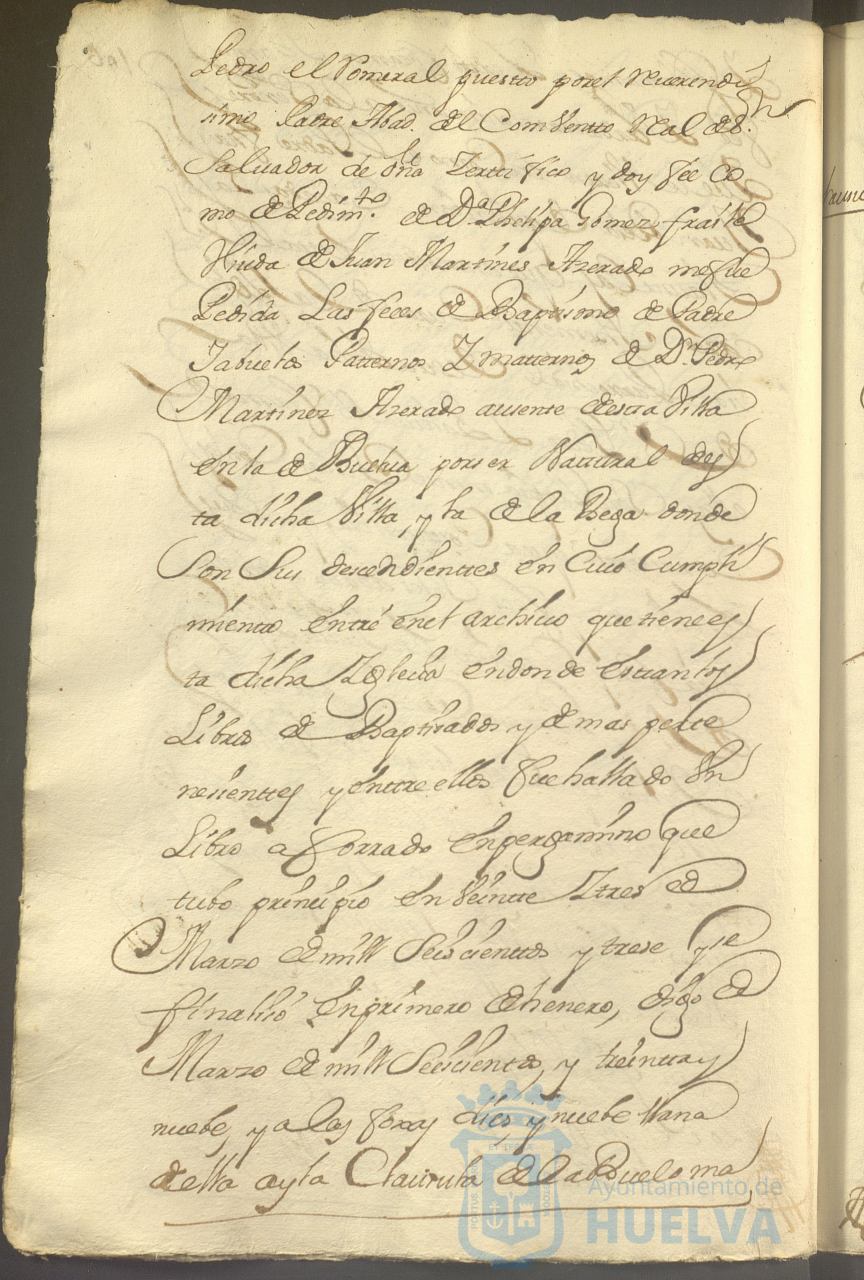 Pedro el Pomeral puestto porel Reverendis
simo Padre Abad. del Combentto Real de S.
Salvador de Oña Zerttifico y doy fee Co
mo de Pedim.to de D.ª Phelipa Gomez fraile
Viuda de Juan Martines Azerado mefue
Pedida Las feees de Baptismo de Padre
Yabuelos Patternos Y matternos de D.n Pedro
Martinez Azerado ausente destta Villa
en la de Buelva porser Natural des
ta dicha Villa, y la de la Bega donde
Son Sus descendienttes en Cuio Cumpli
miento entré enel archivo que tiene es
ta dicha Yglecia endonde estan los
Libros de Baptizados y demas perte
necienttes y entre ellos fuehallado Un
Libro aforrado enpergamino que
tubo principio en Veintte Ytres de
Marzo de mill Seiscienttos y trese y se
finalisó enprimero de henero, digo de
Marzo de mill Seiscientos, y treinta y
nuebe, y a las foxas dies, y nuebe llana
della ay la Claucula de la